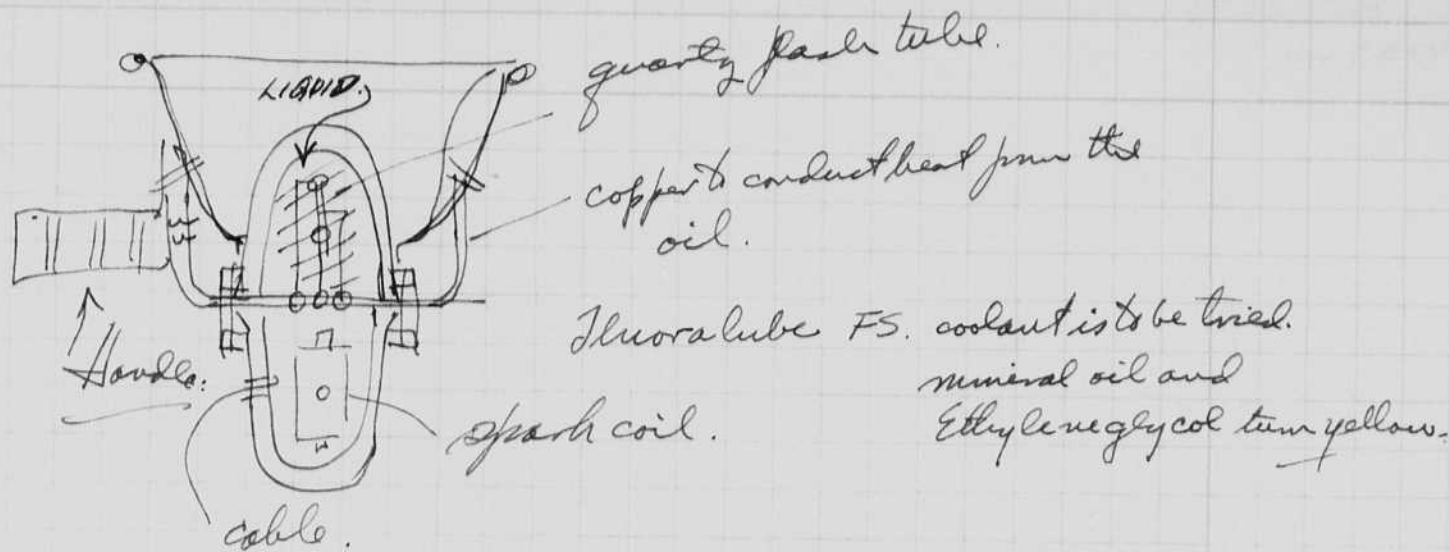 LIQUID.
quartz flash tube.
copper to conduct heat from the
oil.
Handle.
Fluoralube FS. coolant is to be tried.
mineral oil and
Ethylene glycol turn yellow.
spark coil.
cable.